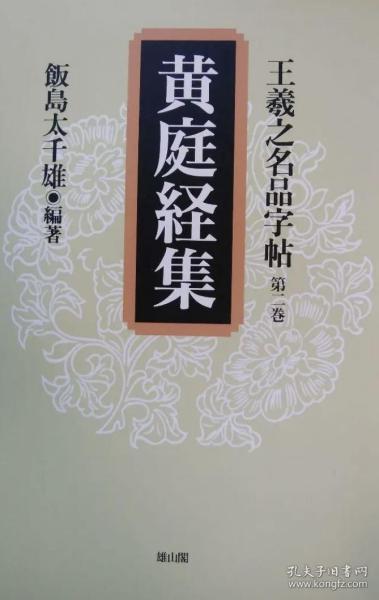 王羲之名品字帖 第二巻
黄庭経集
飯島太千雄●編著
雄山閣
孔夫子旧书网